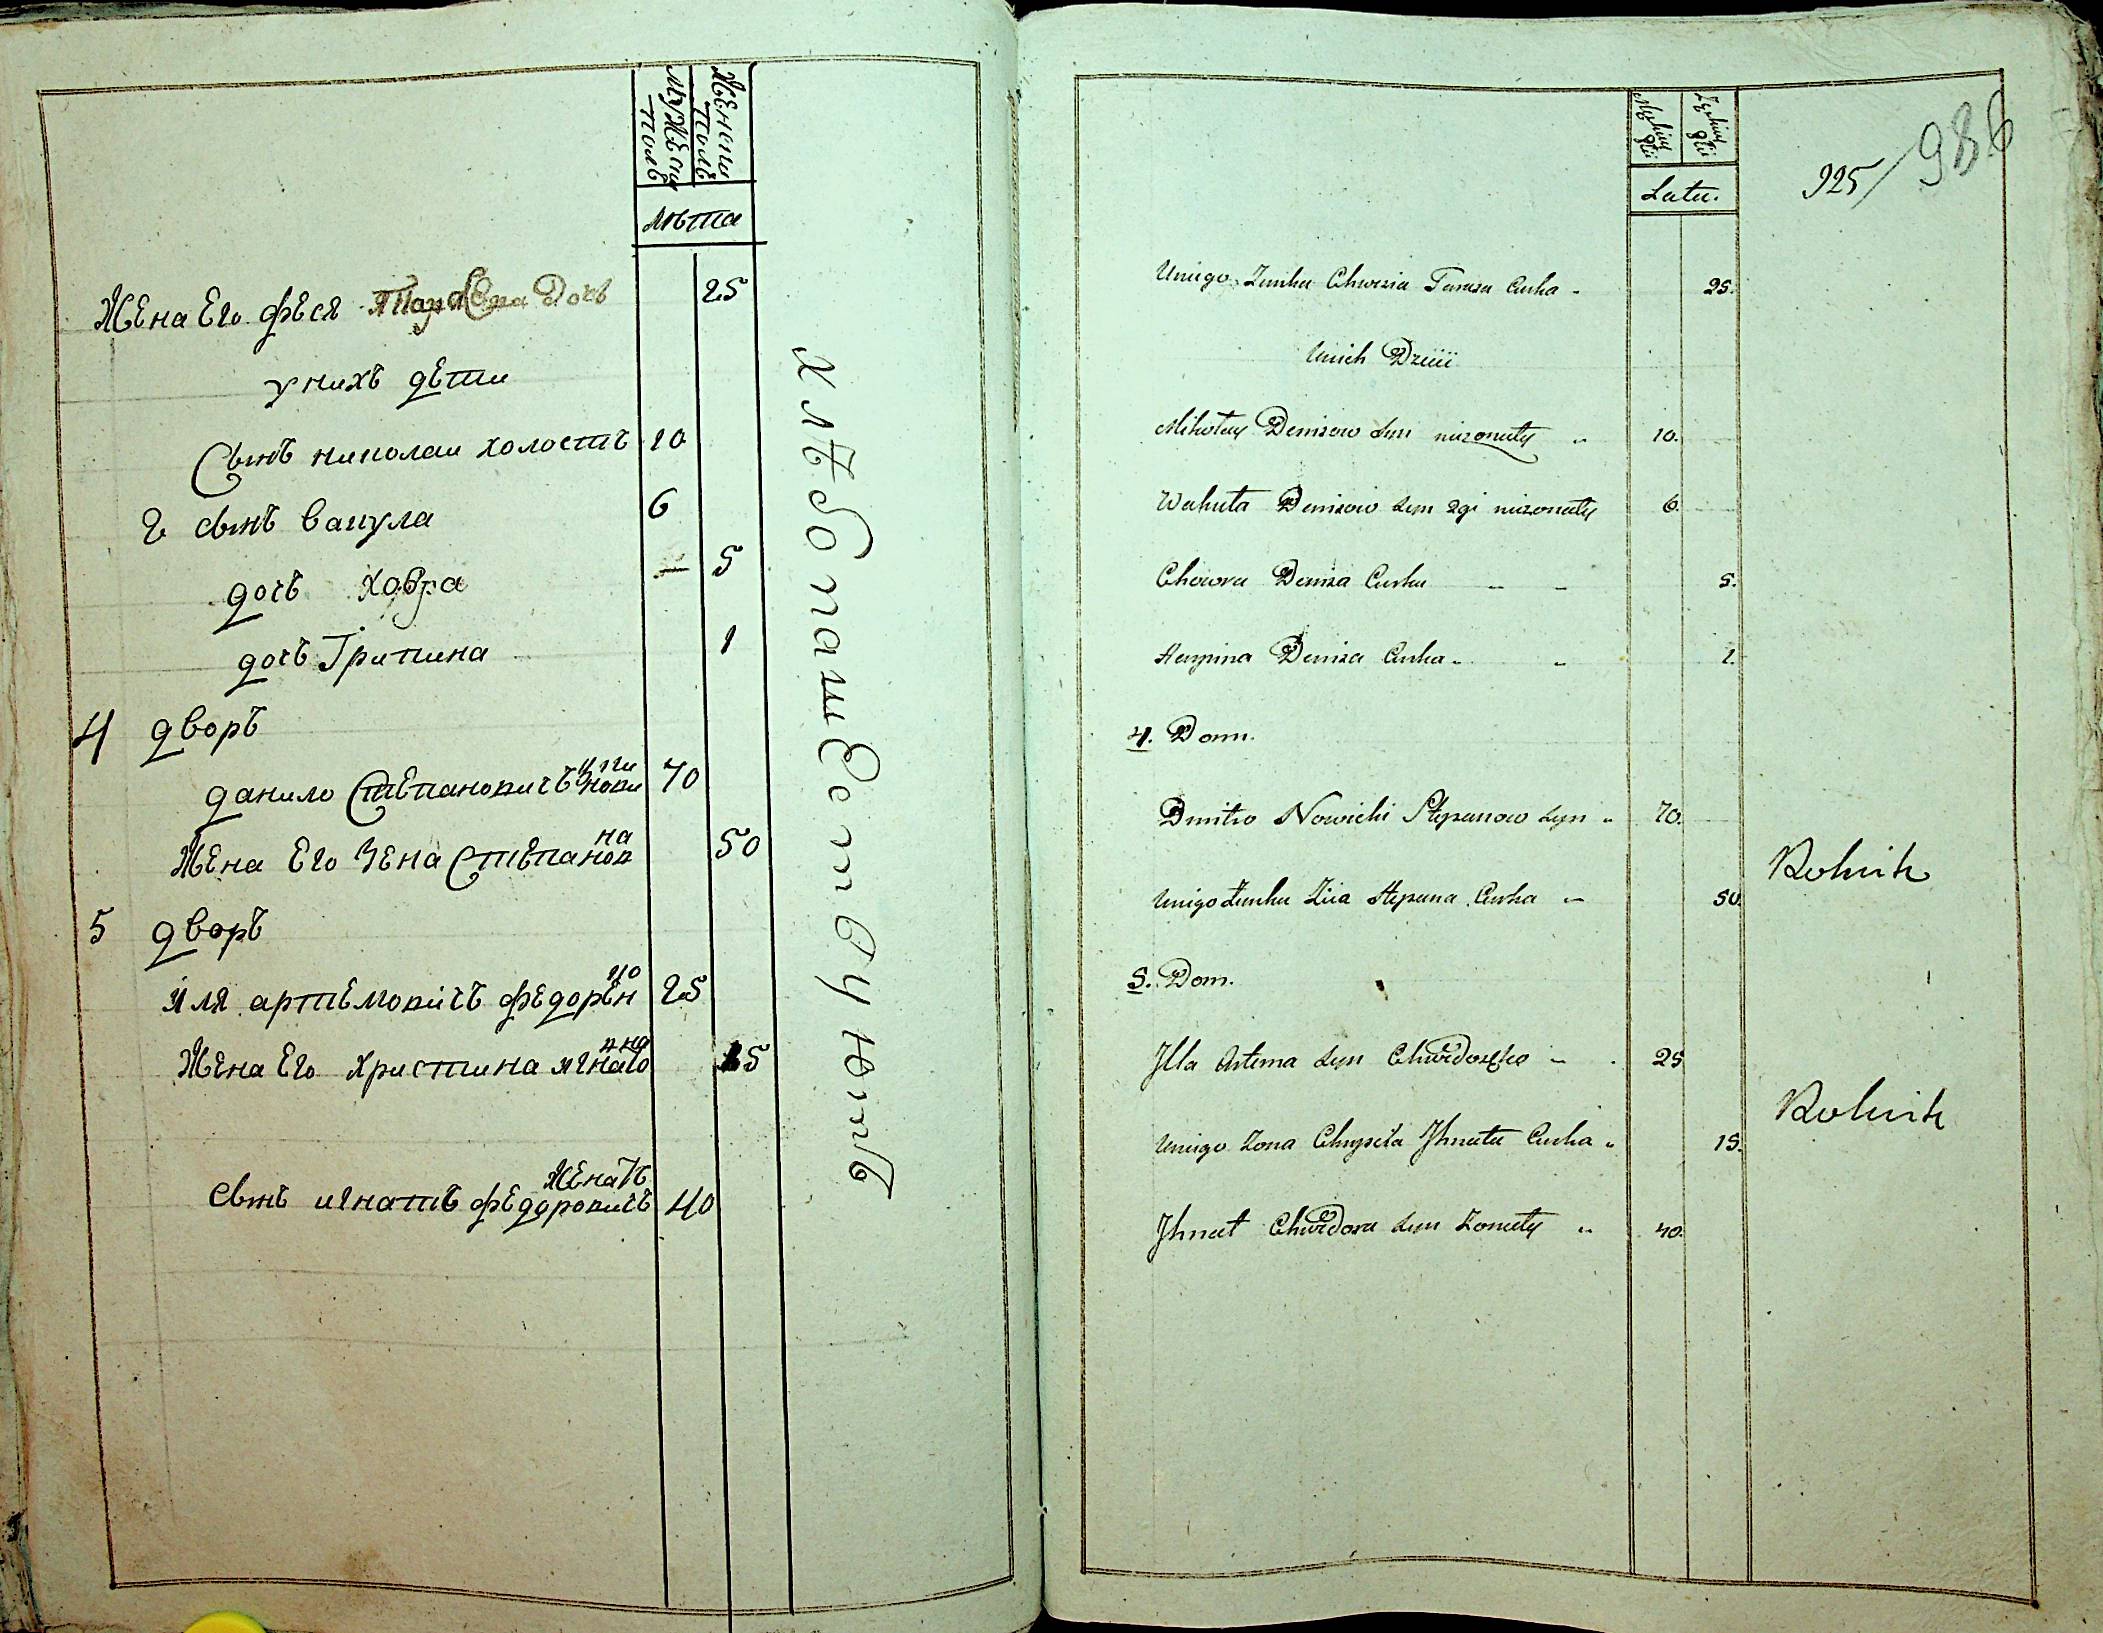 Женски Полъ
Мужески Полъ
Лѣта
Жена Его фЕся Тарасова Дочь 25
у нихъ дЕти
Сынъ николаи холостъ 10
2 сынъ вакула 6
дочь хавра — 5
дочь Грипина 1
4 дворъ
данило СтЕпановичъ 70
Жена Его ЗЕна СтЕпановна 50
5 дворъ
Иля артЕмовичъ фЕдорЕнко 25
Жена Его христина игнатовна 15
сынъ игнатъ фЕдоровичъ жЕнатъ 40
хлѣбопашЕствуютъ
925/986
Męskiey Płci
Żeńskiey Płci
Latu.
Uniego Żunka Chwesia Tarasa Curka 25.
Unich Dzieii
Mikołay Denisow Syn nieżonaty 10.
Wakuła Denisow Syn 2gi nieżonaty 6.
Chowra Denisa Curka 5.
Denisa Curka 1.
4. Dom.
Dmitro Nowicki Stepanow Syn 70.
Uniego Żunka Zina Stepana Curka 50.
Rolnik
5. Dom.
Jlla Artema Syn Chwedoręko 25
Uniego Żona Jhnata Curka 15.
Rolnik
Jhnat Chwedora Syn Żonaty 40.